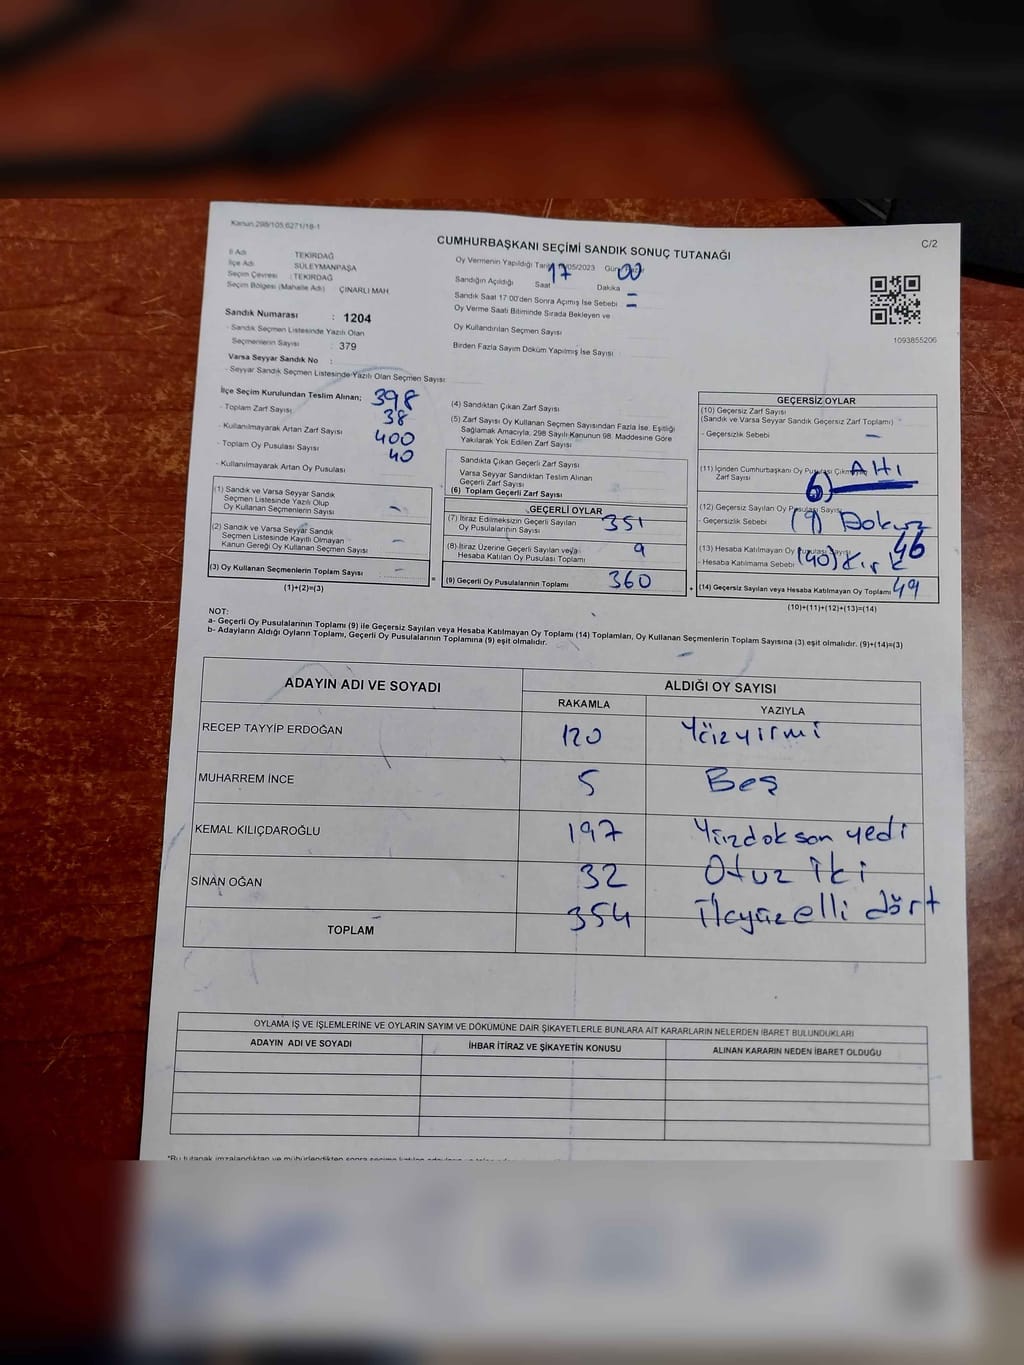 Kanun 298/105,6271/18-1
C/2
CUMHURBAŞKANI SEÇİMİ SANDIK SONUÇ TUTANAĞI
İl Adı TEKİRDAĞ
İlçe Adı SÜLEYMANPAŞA
Seçim Çevresi : TEKİRDAĞ
Seçim Bölgesi (Mahalle Adı) ÇINARLI MAH.
Sandık Numarası : 1204
- Sandık Seçmen Listesinde Yazılı Olan
Seçmenlerin Sayısı : 379
Varsa Seyyar Sandık No :
- Seyyar Sandık Seçmen Listesinde Yazılı Olan Seçmen Sayısı
Oy Vermenin Yapıldığı Tarih /05/2023 Gün
Sandığın Açıldığı Saat 17 Dakika 00
Sandık Saat 17:00'den Sonra Açımış İse Sebebi =
Oy Verme Saati Bitiminde Sırada Bekleyen ve
Oy Kullandırılan Seçmen Sayısı
Birden Fazla Sayım Döküm Yapılmış İse Sayısı
1093855206
İlçe Seçim Kurulundan Teslim Alınan;
- Toplam Zarf Sayısı 398
- Kullanılmayarak Artan Zarf Sayısı 38
- Toplam Oy Pusulası Sayısı 400
- Kullanılmayarak Artan Oy Pusulası 40
(1) Sandık ve Varsa Seyyar Sandık
Seçmen Listesinde Yazılı Olup
Oy Kullanan Seçmenlerin Sayısı -
(2) Sandık ve Varsa Seyyar Sandık
Seçmen Listesinde Kayıtlı Olmayan
Kanun Gereği Oy Kullanan Seçmen Sayısı -
(3) Oy Kullanan Seçmenlerin Toplam Sayısı -
(1)+(2)=(3)
(4) Sandıktan Çıkan Zarf Sayısı
(5) Zarf Sayısı Oy Kullanan Seçmen Sayısından Fazla İse, Eşitliği
Sağlamak Amacıyla, 298 Sayılı Kanunun 98. Maddesine Göre
Yakılarak Yok Edilen Zarf Sayısı
Sandıkta Çıkan Geçerli Zarf Sayısı
Varsa Seyyar Sandıktan Teslim Alınan
Geçerli Zarf Sayısı
(6) Toplam Geçerli Zarf Sayısı
GEÇERLİ OYLAR
(7) İtiraz Edilmeksizin Geçerli Sayılan
Oy Pusulalarının Sayısı 351
(8) İtiraz Üzerine Geçerli Sayılan veya
Hesaba Katılan Oy Pusulası Toplamı 9
(9) Geçerli Oy Pusulalarının Toplamı 360
GEÇERSİZ OYLAR
(10) Geçersiz Zarf Sayısı
(Sandık ve Varsa Seyyar Sandık Geçersiz Zarf Toplamı)
- Geçersizlik Sebebi -
(11) İçinden Cumhurbaşkanı Oy Pusulası
Zarf Sayısı 6) AHı
(12) Geçersiz Sayılan Oy Pusulası Sayısı
- Geçersizlik Sebebi (9) Dokuz
(13) Hesaba Katılmayan Oy Pusulası Sayısı 46
- Hesaba Katılmama Sebebi (40) Kırk
(14) Geçersiz Sayılan veya Hesaba Katılmayan Oy Toplamı 49
(10)+(11)+(12)+(13)=(14)
NOT:
a- Geçerli Oy Pusulalarının Toplamı (9) ile Geçersiz Sayılan veya Hesaba Katılmayan Oy Toplamı (14) Toplamları, Oy Kullanan Seçmenlerin Toplam Sayısına (3) eşit olmalıdır. (9)+(14)=(3)
b- Adayların Aldığı Oyların Toplamı, Geçerli Oy Pusulalarının Toplamına (9) eşit olmalıdır.
ADAYIN ADI VE SOYADI ALDIĞI OY SAYISI
RAKAMLA YAZIYLA
RECEP TAYYİP ERDOĞAN 120 Yüzyirmi
MUHARREM İNCE 5 Beş
KEMAL KILIÇDAROĞLU 197 Yüzdoksan yedi
SİNAN OĞAN 32 Otuz İki
TOPLAM 354 elli dört
OYLAMA İŞ VE İŞLEMLERİNE VE OYLARIN SAYIM VE DÖKÜMÜNE DAİR ŞİKAYETLERLE BUNLARA AİT KARARLARIN NELERDEN İBARET BULUNDUKLARI
ADAYIN ADI VE SOYADI İHBAR İTİRAZ VE ŞİKAYETİN KONUSU ALINAN KARARIN NEDEN İBARET OLDUĞU
*Bu tutanak imzalandıktan ve mühürlendikten sonra